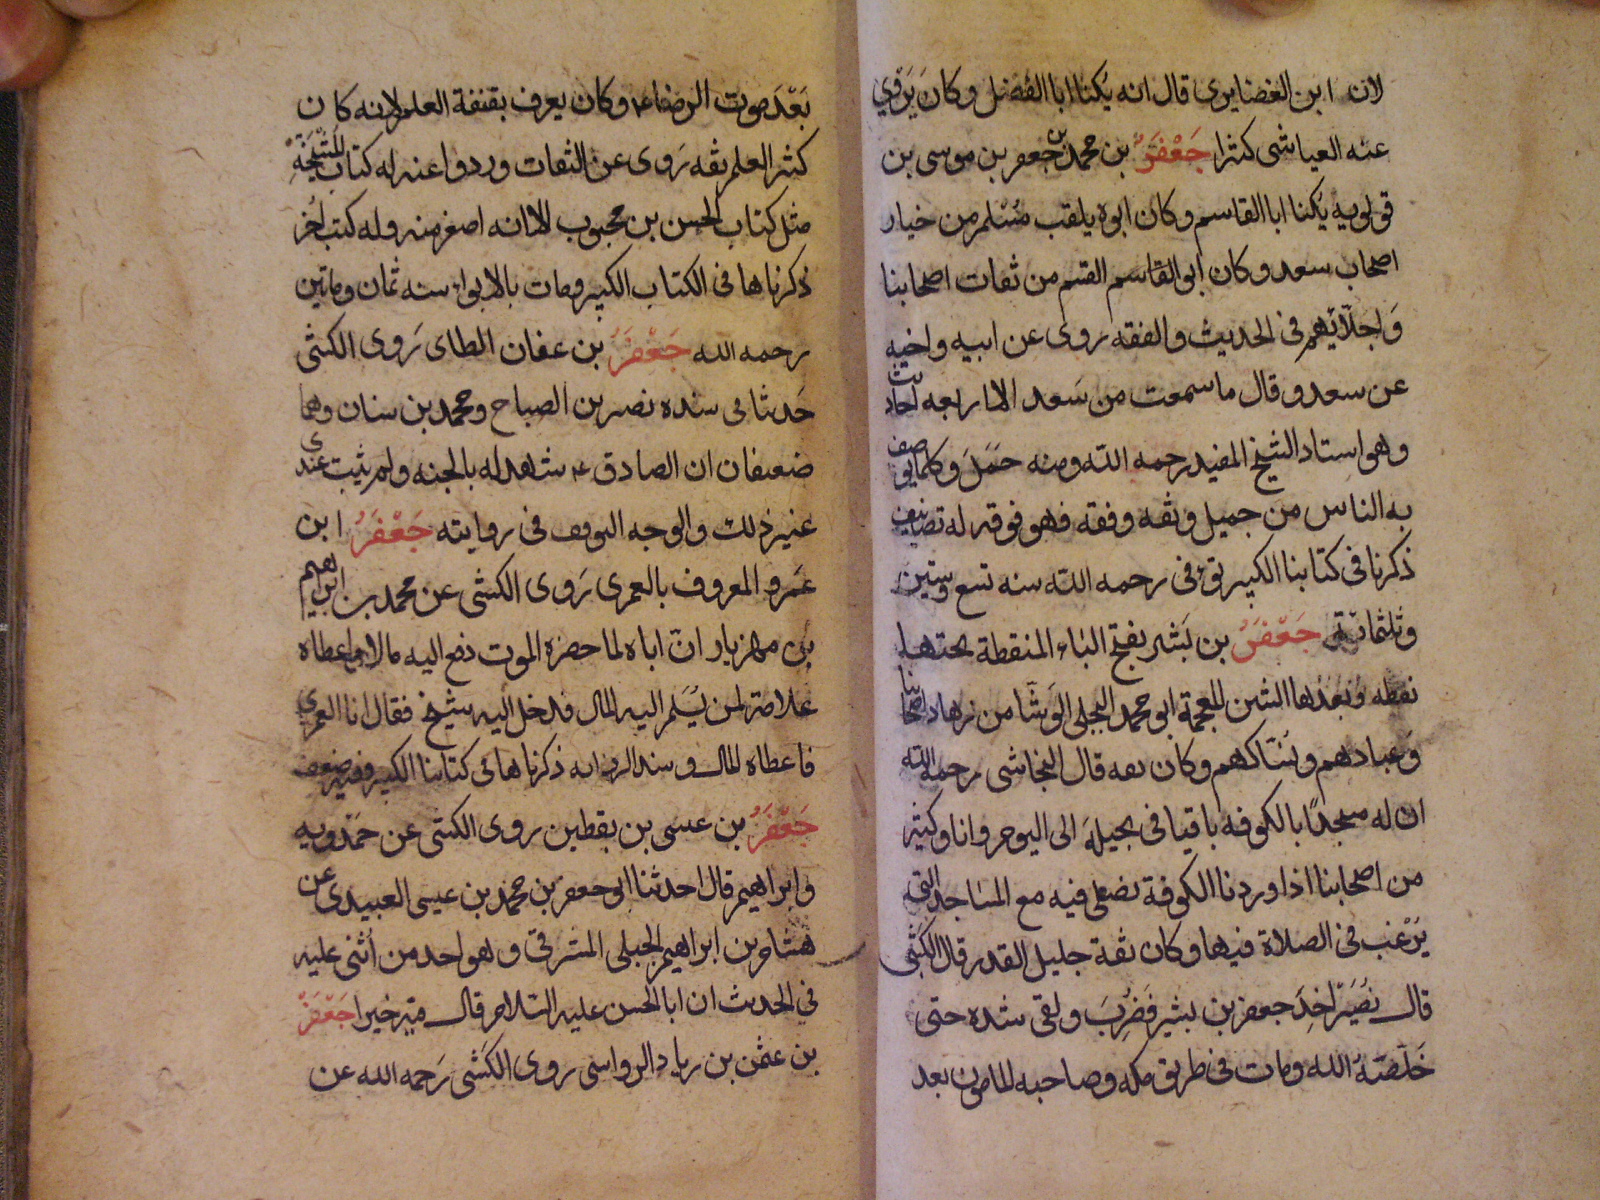 لان ابن الغضايرى قال انه يكنا ابا الفضل وكان يروي
عنه العياشى كثيرا جعفر بن محمد بن جعفر بن موسى بن
قولويه يكنا ابا القاسم وكان ابوه يلقب مسلم من خيار
اصحاب سعد وكان ابو القاسم القسم من ثقات اصحابنا
واجلائهم فى الحديث والفقه روى عن ابيه واخيه
عن سعد وقال ما سمعت من سعد الا اربعه احاديث
وهو استاد الشيخ المفيد رحمه الله ومنه حمل وكلما يوصف
به الناس من جميل وثقه وفقه فهو فوقه له تصانيف
ذكرنا فى كتابنا الكبير توفى رحمه الله سنه تسع وستين
وثلثمائة جعفر بن بشير بفتح الباء المنقطة تحتها
نقطه وبعدها الشين المعجمة ابو محمد البجلى الوشا من زهاد اصحابنا
وعبادهم ونساكهم وكان ثقه قال النجاشى رحمه الله
ان له مسجدا بالكوفه باقيا فى بجيلة الى اليوم وانا وكثير
من اصحابنا اذا وردنا الكوفة نصلى فيه مع المساجد التى
يرغب فى الصلاة فيها وكان ثقة جليل القدر قال الكشى
قال نصير اخذ جعفر بن بشير فضرب ولقى شده حتى
خلصه الله ومات فى طريق مكه وصاحبه المامون بعد
بعد موت الرضا ع وكان يعرف بقفة العلم لانه كان
كثير العلم ثقه روى عن الثقات ورووا عنه له كتاب المشيخة
مثل كتاب الحسن بن محبوب الا انه اصغر منه وله كتب اخر
ذكرناها فى الكتاب الكبير ومات بالابواء سنه ثمان وماتين
رحمه الله جعفر بن عفان الطاى روى الكشى
حديثا فى سنده نصر بن الصباح ومحمد بن سنان وهما
ضعيفان ان الصادق ع شاهد له بالجنه ولم يثبت عندى
غير ذلك والوجه التوقف فى روايته جعفر ابن
عمرو المعروف بالعمرى روى الكشى عن محمد بن ابراهيم
بن مهزيار ان اباه لما حضره الموت دفع اليه مالا واعطاه
علامة لمن يسلم اليه المال فدخل اليه شيخ فقال انا العمرى
فاعطاه المال وسند الروايه ذكرناها فى كتابنا الكبير وفيه ضعف
جعفر بن عيسى بن يقطين روى الكشى عن حمدويه
وابراهيم قالا حدثنا ابو جعفر بن محمد بن عيسى العبيدى عن
هشام بن ابراهيم الجبلى المشرقى وهو احد من اثنى عليه
في الحديث ان ابا الحسن عليه السلام قال فيه خيرا جعفر
بن عثمن بن زياد الرواسى روى الكشى رحمه الله عن